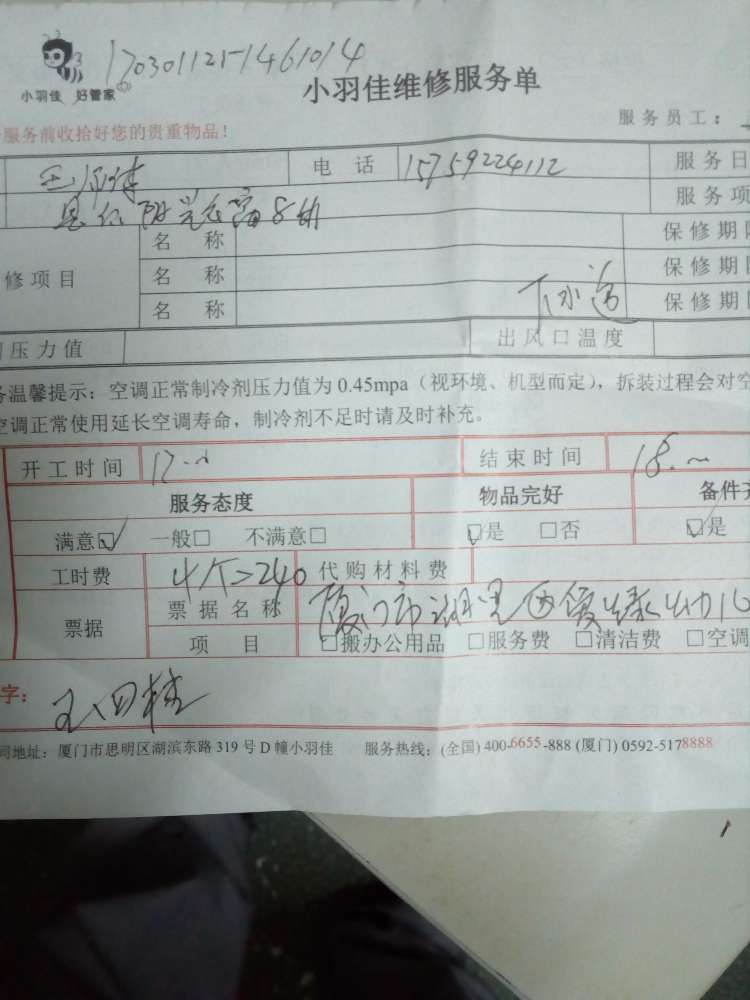 170301121-1461014
小羽佳 好管家
小羽佳维修服务单
服务前收拾好您的贵重物品！
服务员工：
电 话 15759224112 服务日
服务项
名 称 保修期
修项目 名 称 保修期
名 称 下水道 保修期
压力值 出风口温度
温馨提示：空调正常制冷剂压力值为 0.45mpa（视环境、机型而定），拆装过程会对空
空调正常使用延长空调寿命，制冷剂不足时请及时补充。
开工时间 17. 结束时间 18.
服务态度 物品完好 备件齐
满意☑ 一般□ 不满意□ ☑是 □否 ☑是
工时费 4个=240 代购材料费
票据 票据名称 厦门市湖里 幼儿
项 目 □搬办公用品 □服务费 □清洁费 □空调
字：
司地址：厦门市思明区湖滨东路 319 号 D 幢小羽佳 服务热线：(全国) 400-6655-888 (厦门) 0592-5178888